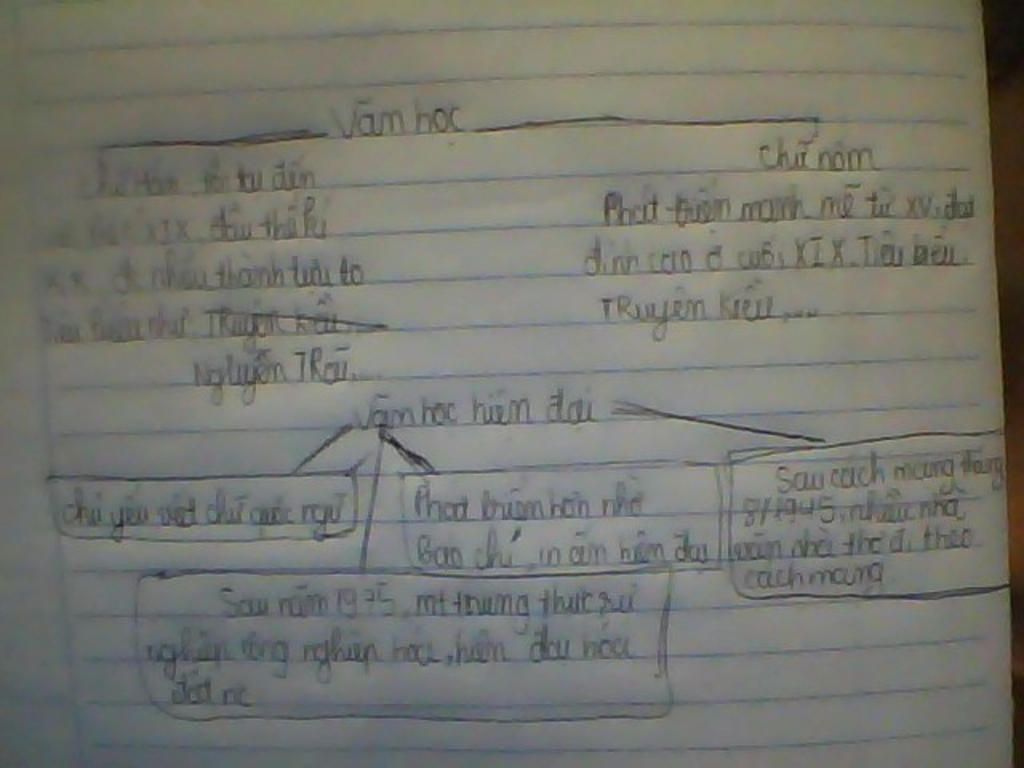 Văn học
Chữ Hán tồn tại đến
XIX, đầu thế kỉ
XX, nhiều thành tựu to
như Truyện kiều....
Nguyễn TRãi....
Chữ nôm
Phát triển mạnh mẽ từ XV, đạt
đỉnh cao ở cuối XIX. Tiêu biểu
TRuyện kiều....
Văn học hiện đại
chủ yếu viết chữ quốc ngữ
Phát triển hơn nhờ
Báo chí, in ấn hiện đại
Sau cách mạng tháng
8/1945, nhiều nhà
văn nhà thơ đi theo
cách mạng
Sau năm 1975, mt trung thực sự
nghiệp công nghiệp hóa, hiện đại hóa
đất nc